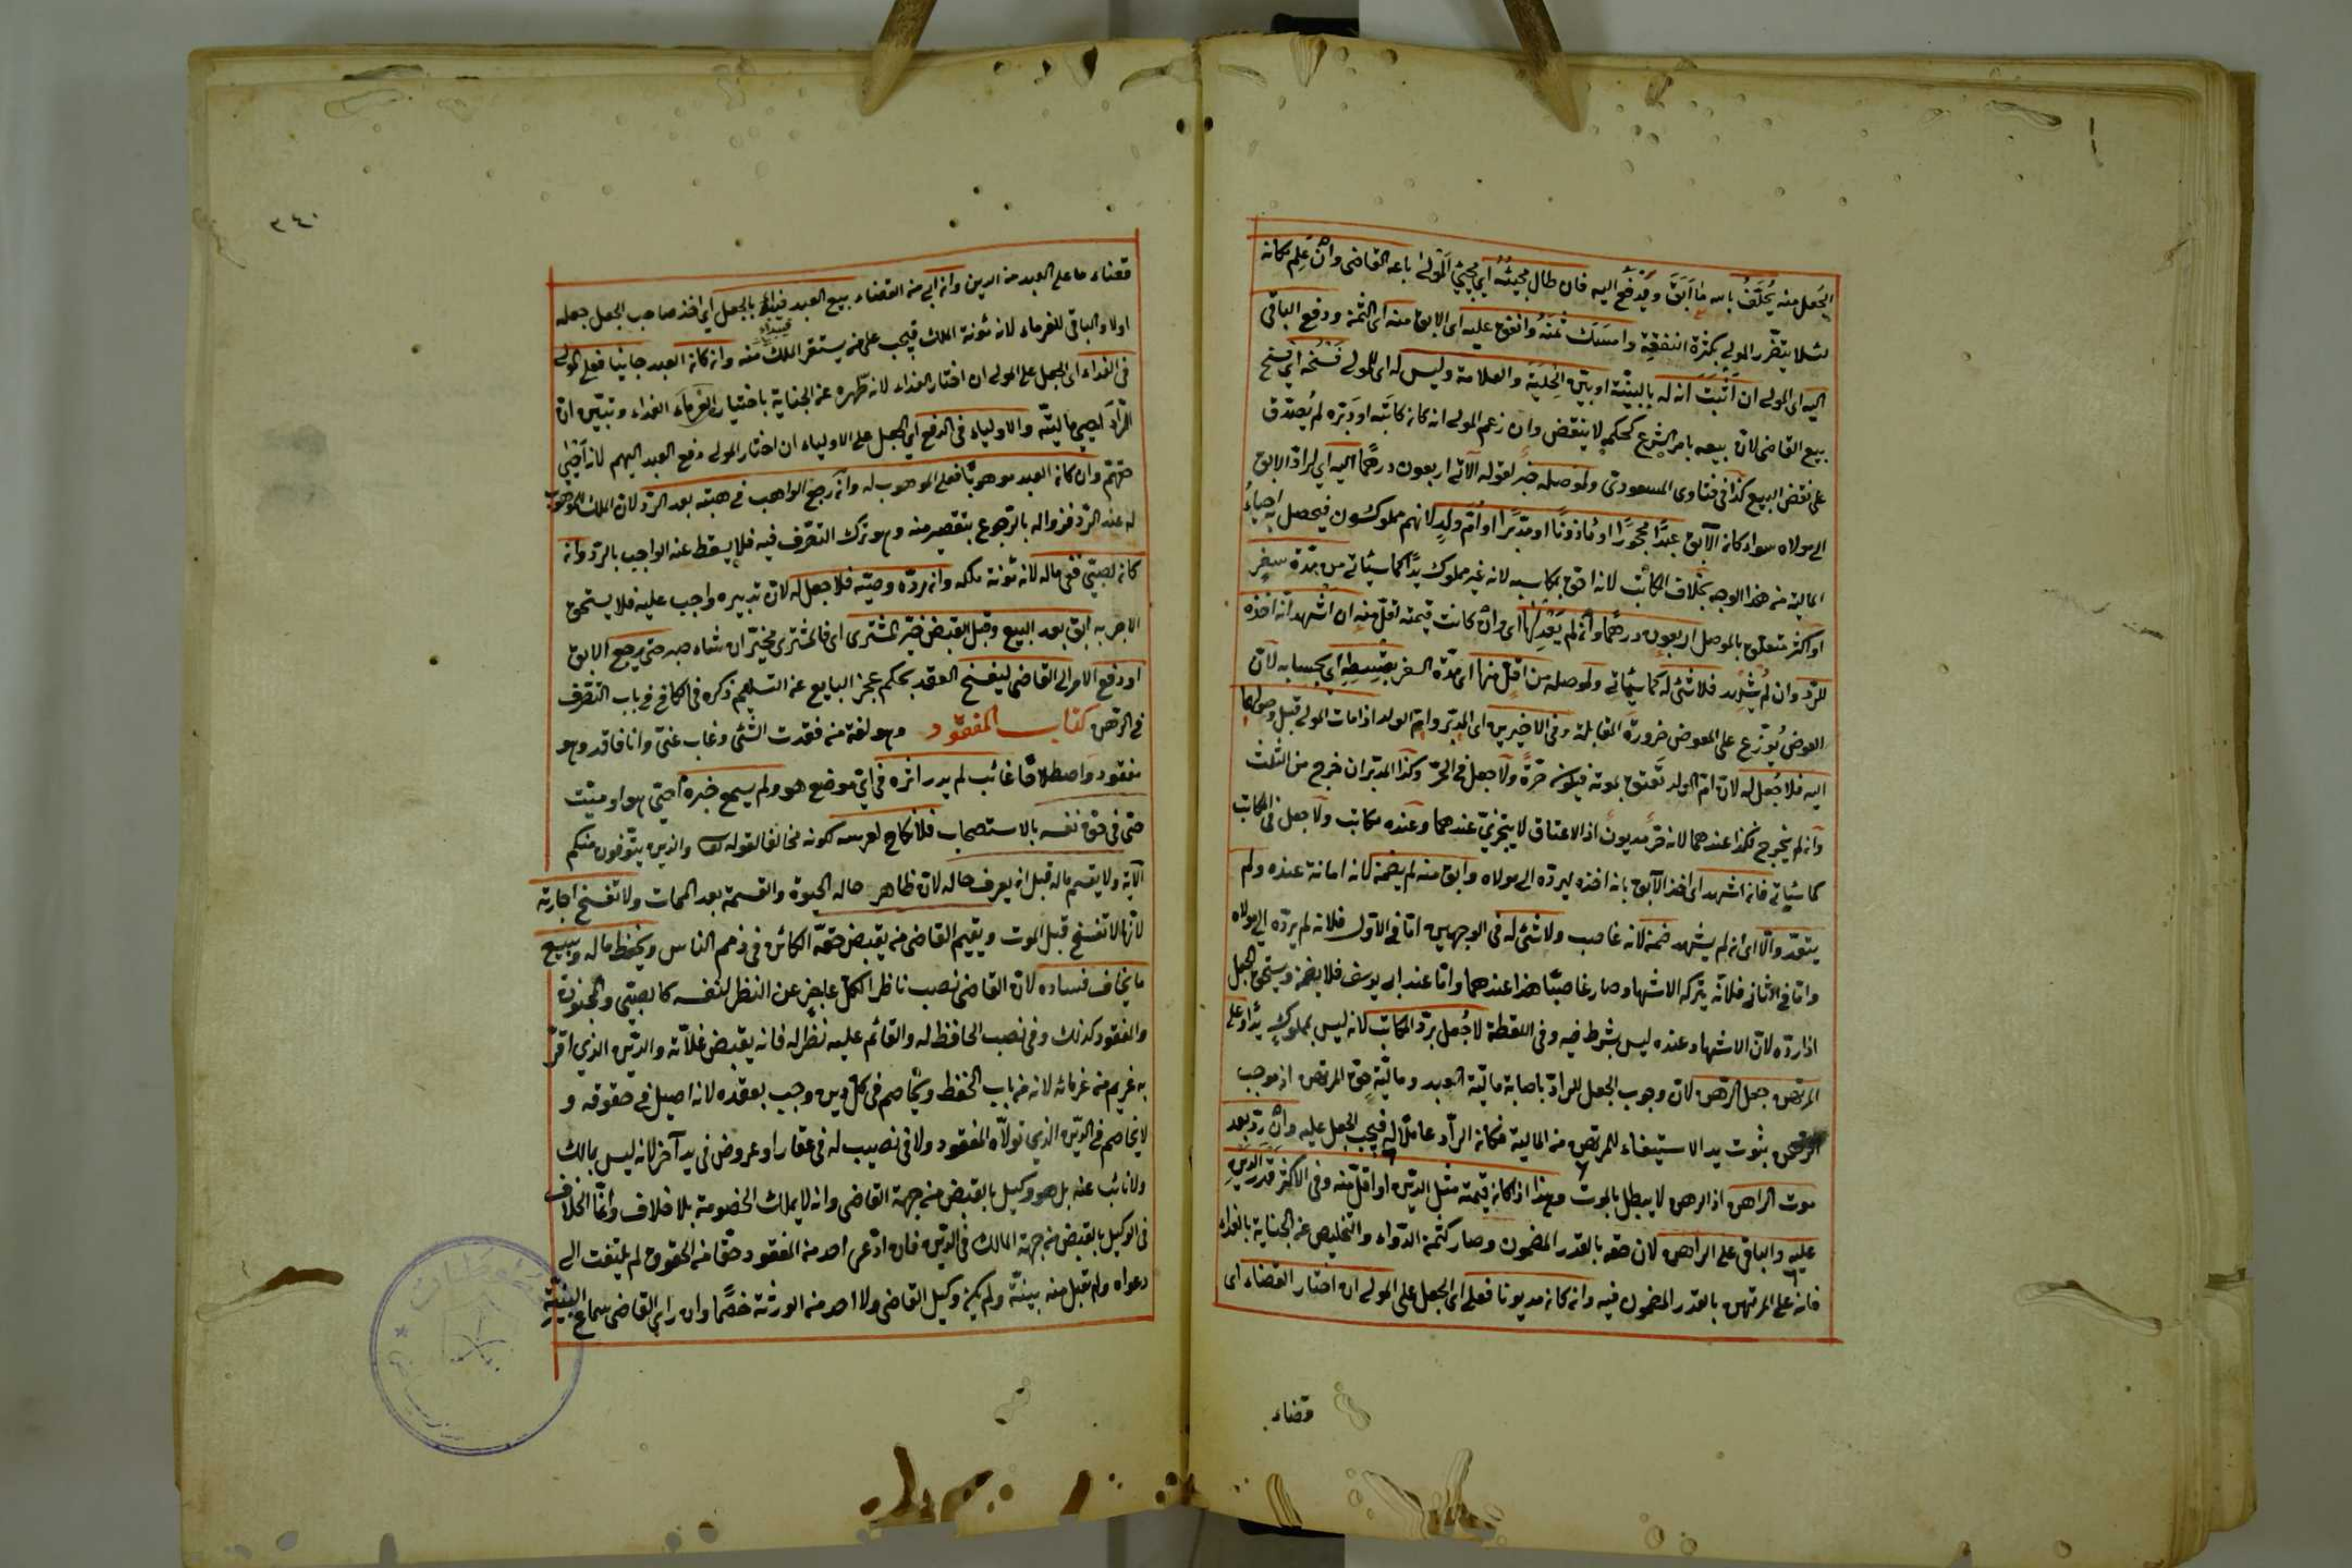 الجعل منه يحلف بالله ما ابق ويدفع اليه فان طال مجيئه اي مجيئ المولى باعه القاضى وان علم مكانه
لئلا يتضرر المولى بكثرة النفقة وامسك ثمنه وانفق عليه اى الابق منه اى الثمن ودفع الباقى
اليه اى المولى ان اثبت انه له بالبينة او بين الحلية والعلامة وليس له اى للمولى فسخه اى فسخ
بيع القاضى لان بيعه بامر الشرع كحكمه لا ينتقض وان زعم المولى انه كان كاتبه او دبره لم يصدق
على نقض البيع كذا فى فتاوى المسعودى ولموصله خبر لقوله الآتى اربعون درهما اليه اى لراد الابق
الى مولاه سواء كان الآبق عبدا محجورا او ماذونا او مدبرا او ام ولد لانهم مملوكون فيحصل به احياء
المالية من هذا الوجه بخلاف المكاتب لانه احق بمكاسبه لانه غير مملوك يدا كما سيأتى من مدة سفر
او اكثر متعلق بالموصل اربعون درهما وان لم يعدلها اى وان كانت قيمته اقل منه ان اشهد انه اخذه
للرد وان لم يشهد فلا شئ له كما سيأتى ولموصله من اقل منها اى مدة السفر بقسطه اى بحسابه لان
العوض يوزع على المعوض ضرورة المقابلة وفى الاخيرين اى المدبر وام الولد اذا مات المولى قبل وصولهما
اليه فلا جعل له لان ام الولد تعتق بموته فيكون حرة ولا جعل فى الحر وكذا المدبر ان خرج من الثلث
وان لم يخرج فكذا عندهما لانه حر مديون اذ الاعتاق لا يتجزئ عندهما وعنده مكاتب ولا جعل فى المكاتب
كما سيأتى فان اشهد اى اخذ الآبق بانه اخذه ليرده الى مولاه وابق منه لم يضمن لانه امانة عنده ولم
يتعد والا اى ان لم يشهد ضمن لانه غاصب ولا شئ له فى الوجهين اما فى الاول فلانه لم يرده الى مولاه
واما فى الثانى فلانه يتركه الاشهاد صار غاصبا هذا عندهما واما عند ابى يوسف فلا يضمن ويستحق الجعل
اذا رده لان الاشهاد عنده ليس بشرط فيه وفى اللقطة لا جعل برد المكاتب لانه ليس بمملوك يدا وعلى
المرتهن جعل الرهن لان وجوب الجعل للراد باصابة مالية العبد ومالية حق المرتهن اذ موجب
الرهن ثبوت يد الاستيفاء للمرتهن من المالية فكان الراد عاملا له فيجب الجعل عليه وان رد بعد
موت الراهن اذ الرهن لا يبطل بالموت وهذا اذا كان قيمته مثل الدين او اقل منه وفى الاكثر قدر الدين
عليه والباقى على الراهن لان حقه بالقدر المضمون وصار كثمن الدواء والتخليص عن الجناية بالفداء
فانه على المرتهن بالقدر المضمون فيه وان كان مديونا فعلى اى الجعل على المولى ان اختار القضاء اى
قضاء
٢٤٠
قضاء ما على العبد من الدين وان ابى من القضاء بيع العبد فبدئ بالجعل اى اخذ صاحب الجعل جعله
اولا والباقى للغرماء لانه مئونة الملك فيجب على من يستقر الملك منه وان كان العبد جانيا فعلى المولى
فى الفداء اى الجعل على المولى ان اختار الفداء لانه طهره عن الجناية باختيار الفداء وتبين ان
الراد احيى ماليته والاولياء فى الدفع اى الجعل على الاولياء ان اختار المولى دفع العبد اليهم لانه احيى
حقهم وان كان العبد موهوبا فعلى الموهوب له وان رجع الواهب فى هبته بعد الرد لان الملك للموهوب
له عند الرد فزواله بالرجوع بتقصير منه وهو ترك التصرف فيه فلا يسقط عنه الواجب بالرد وان
كان لصبى ففى ماله لانه مئونة ملكه وان رده وصيه فلا جعل له لان تدبيره واجب عليه فلا يستحق
الاجر به ابق بعد البيع وقبل القبض خير المشترى اى فالمشترى مخير ان شاء صبر حتى يرجع الابق
او دفع الامر الى القاضى ليفسخ العقد بحكم عجز البايع عن التسليم ذكره فى الكافى فى باب التصرف
فى الرهن كتاب المفقود وهو لغة من فقدت الشئ وغاب عنى وانا فاقد وهو
مفقود واصطلاحا غائب لم يدر اثره فى اى موضع هو ولم يسمع خبره أحى هو او ميت
حى فى حق نفسه بالاستصحاب فلا نكاح لعرسه لكونه مخالفا لقوله تعالى والذين يتوفون منكم
الآية ولا يقسم ماله قبل ان يعرف حاله لان ظاهر حاله الحيوة والقسمة بعد الممات ولا تفسخ اجارته
لانها لا تفسخ قبل الموت ويقيم القاضى من يقبض حقه الكائن فى ذمم الناس ويحفظ ماله ويبيع
ما يخاف فساده لان القاضى نصب ناظرا لكل عاجز عن النظر لنفسه كالصبى والمجنون
والمفقود كذلك وفى نصب الحافظ له والقائم عليه نظر له فانه يقبض غلاته والدين الذى اقر
به غريم من غرمائه لانه من باب الحفظ ويخاصم فى كل دين وجب بعقده لانه اصيل فى حقوقه و
لا يخاصم فى الدين الذى تولاه المفقود ولا فى نصيب له فى عقار او عروض فى يد آخر لانه ليس بمالك
ولا نائب عنه بل هو وكيل بالقبض من جهة القاضى وانه لا يملك الخصومة بلا خلاف وانما الخلاف
فى الوكيل بالقبض من جهة المالك فى الدين فان ادعى احد من المفقود حقا من الحقوق لم يلتفت الى
دعواه ولم تقبل منه بينة ولم يكن وكيل القاضى ولا احد من الورثة خصما وان رأى القاضى سماع البينة